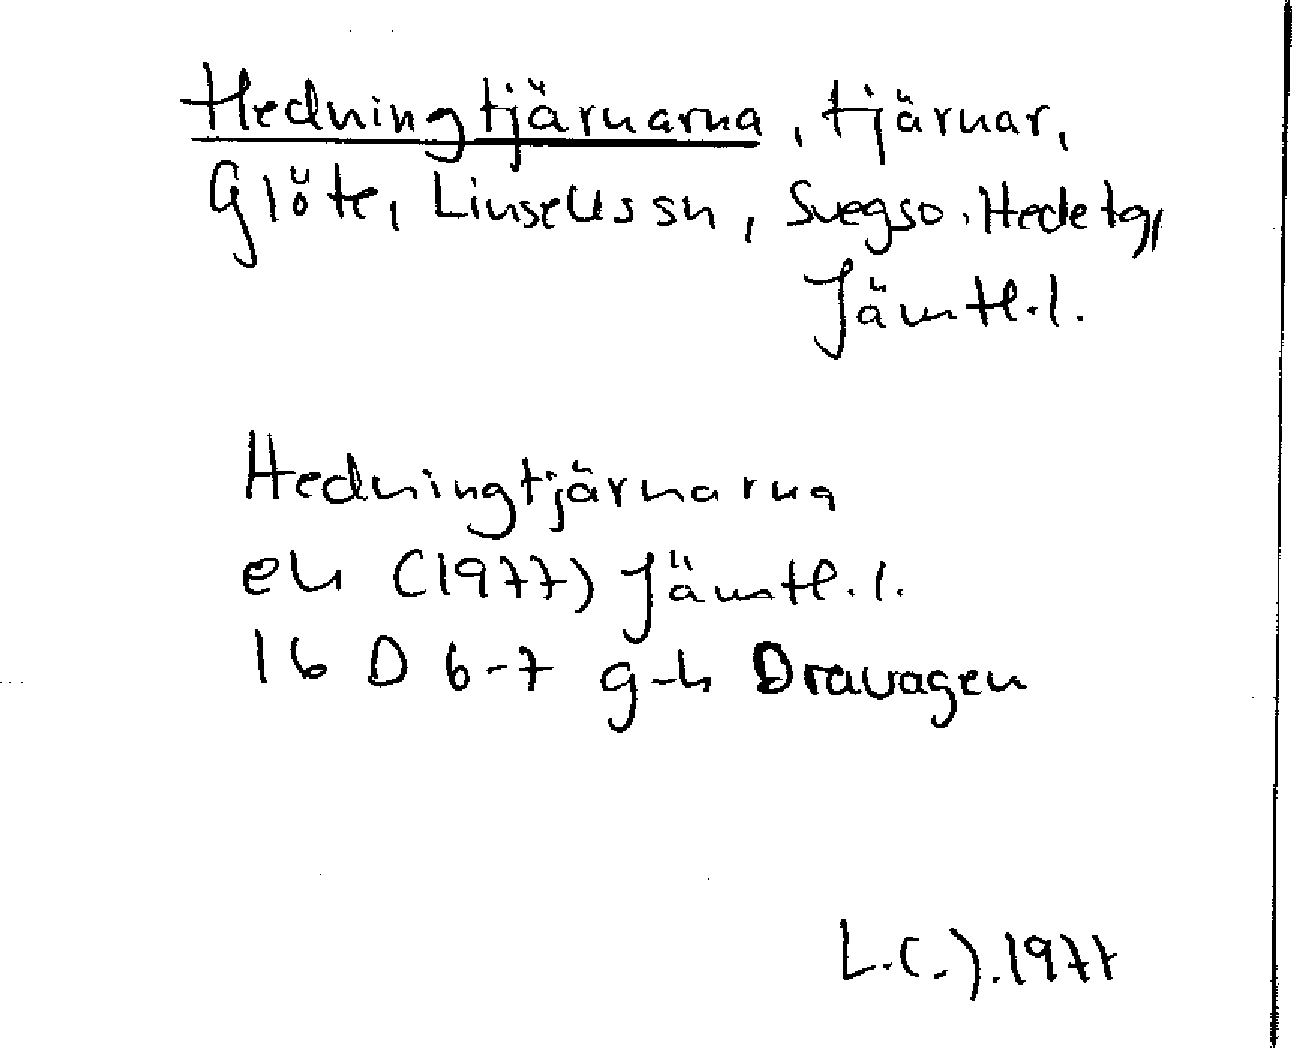 Hedningtjärnarna, tjärnar,
Glöte, Linsells sn, Svegs o. Hede tg,
Jämtl. l.
Hedningtjärnarna
ek (1977) Jämtl. l.
16 D 6-7 g-h Dravagen
L.(-).1977